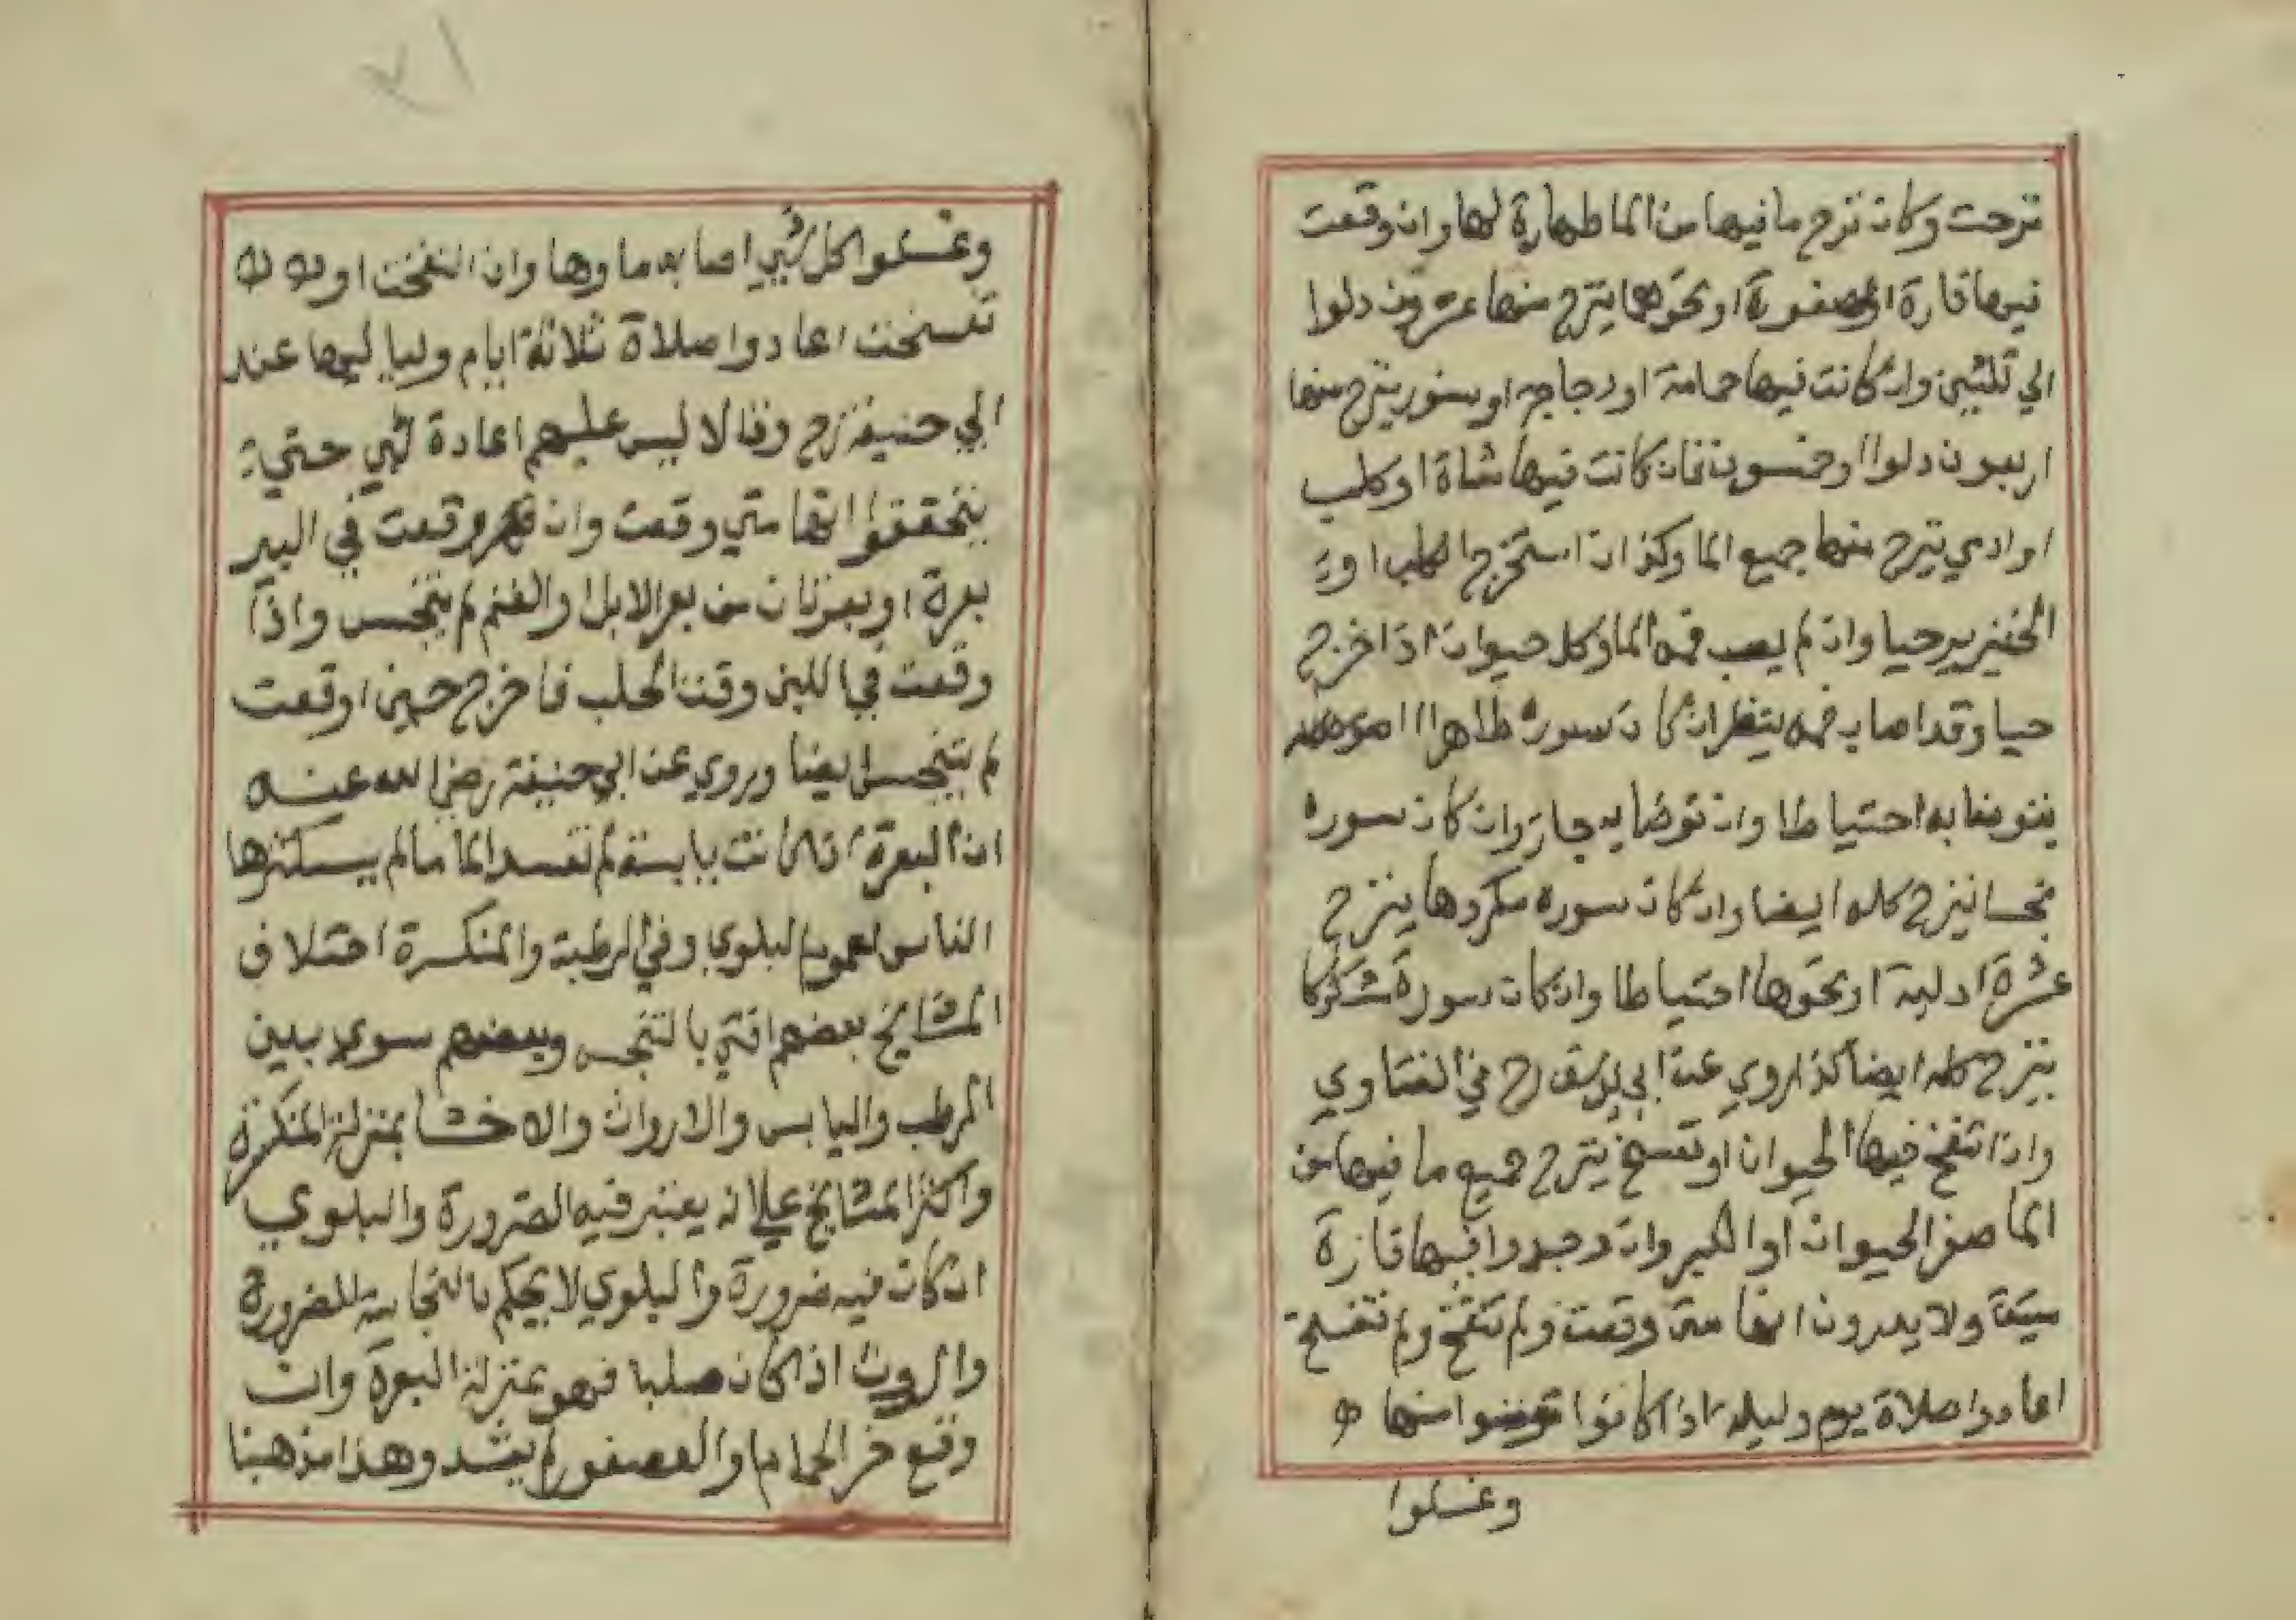 نزحت وكان نزح ما فيها من الما طهارة لها وان وقعت
فيها فارة او عصفورة او نحوهما ينزح منها عشرون دلوا
الي ثلثين وان كانت فيها حمامة او دجاجه او سنور ينزح منها
اربعون دلوا او خمسون فان كانت فيها شاة او كلب
او ادمي ينزح منها جميع الما وكذا ان استخرج الكلب او
الخنزير حيا وان لم يصب فمه الما وكل حيوان اذا خرج
حيا وقد اصاب فمه ينظر ان كان سوره طاهرا
يتوضا به احتياطا وان توضا به جاز وان كان سوره
نجسا ينزح كله ايضا وان كان سوره مكروها ينزح
عشرة ادلية او نحوها احتياطا وان كان سورة مشكوكا
ينزح كله ايضا كذا روي عن ابي يوسف رح في الفتاوي
واذا انتفخ فيها الحيوان او تفسخ ينزح جميع ما فيها من
الما صغر الحيوان او الكبر وان وجدوا فيها فارة
ميتة ولا يدرون انها متى وقعت ولم تنتفخ ولم تتفسخ
اعادوا صلاة يوم وليلة اذا كانوا توضوا منها
وغسلوا
وغسلوا كل شي اصابه ماوها وان انتفخت او
تفسخت اعادوا صلاة ثلاثة ايام ولياليها عند
ابي حنيفة رح وقالا ليس عليهم اعادة شي حتي
يتحققوا انها متي وقعت وان وقعت في البير
بعرة او بعرتان من بعر الابل او الغنم لم يتنجس واذا
وقعت في اللبن وقت الحلب فاخرج حين اوقعت
لم يتنجس ايضا وروي عن ابي حنيفة رضي الله عنه
ان البعرة ان كانت يابسة لم تفسد الما ما لم يستكثرها
الناس لعموم البلوي وفي الرطبة والمنكسرة اختلاف
المشايخ بعضهم افتي بالتنجس وبعضهم سوي بين
الرطب واليابس والارواث والاخشا بمنزلة المنكسرة
واكثر المشايخ علي انه يعتبر فيه الضرورة والبلوي
ان كان فيه ضرورة والبلوي لا يحكم بالنجاسة للضرورة
والروث اذا كان صلبا فهو بمنزلة البعرة وان
وقع خر الحمام والعصفور لم يفسد وهذا مذهبنا